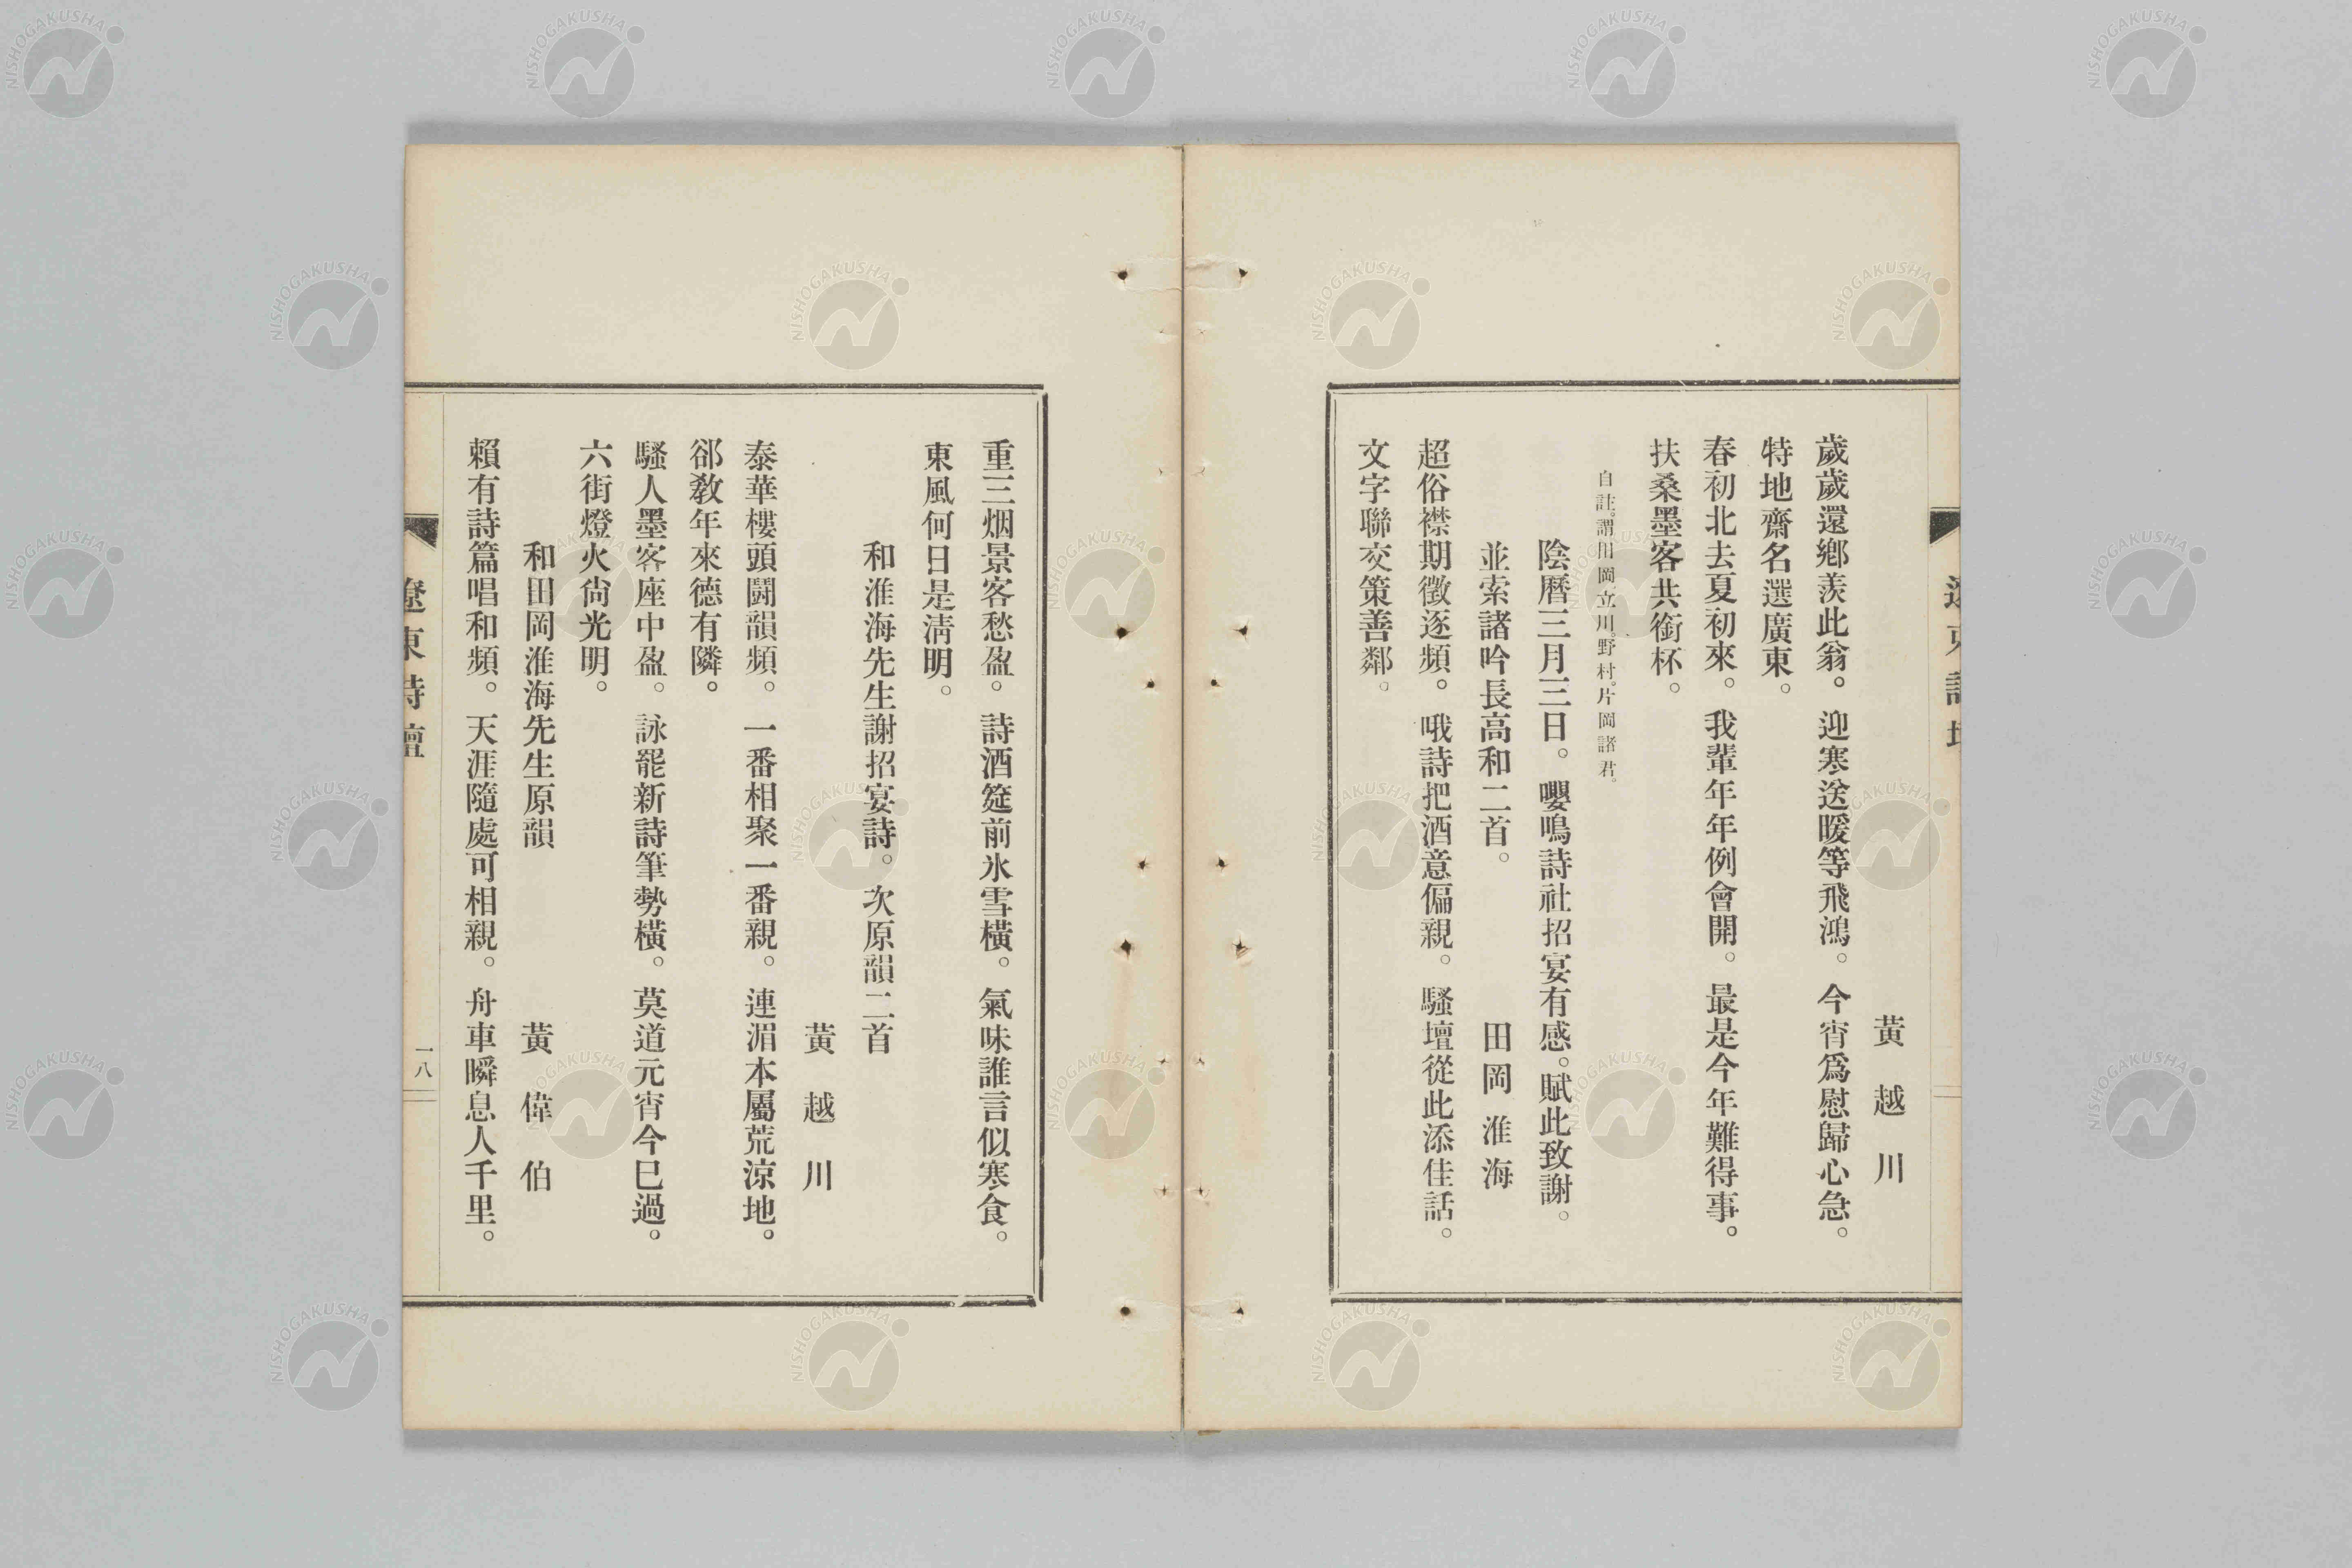 黃越川
歲歲還鄕羨此翁。迎寒送暖等飛鴻。今宵爲慰歸心急。
特地齋名選廣東。
春初北去夏初來。我輩年年例會開。最是今年難得事。
扶桑墨客共銜杯。
自註。謂田岡立川。野村。片岡諸君。
陰曆三月三日。嚶鳴詩社招宴有感。賦此致謝。
並索諸吟長高和二首。 田岡淮海
超俗襟期徵逐頻。哦詩把酒意偏親。騷壇從此添佳話。
文字聯交策善鄰。
重三烟景客愁盈。詩酒筵前氷雪橫。氣味誰言似寒食。
東風何日是淸明。
和淮海先生謝招宴詩。次原韻二首
黃越川
泰華樓頭鬪韻頻。一番相聚一番親。連湄本屬荒涼地。
郤敎年來德有隣。
騷人墨客座中盈。詠罷新詩筆勢橫。莫道元宵今巳過。
六街燈火尙光明。
和田岡淮海先生原韻 黃偉伯
賴有詩篇唱和頻。天涯隨處可相親。舟車瞬息人千里。
遼東詩壇
一八
NISHOGAKUSHA